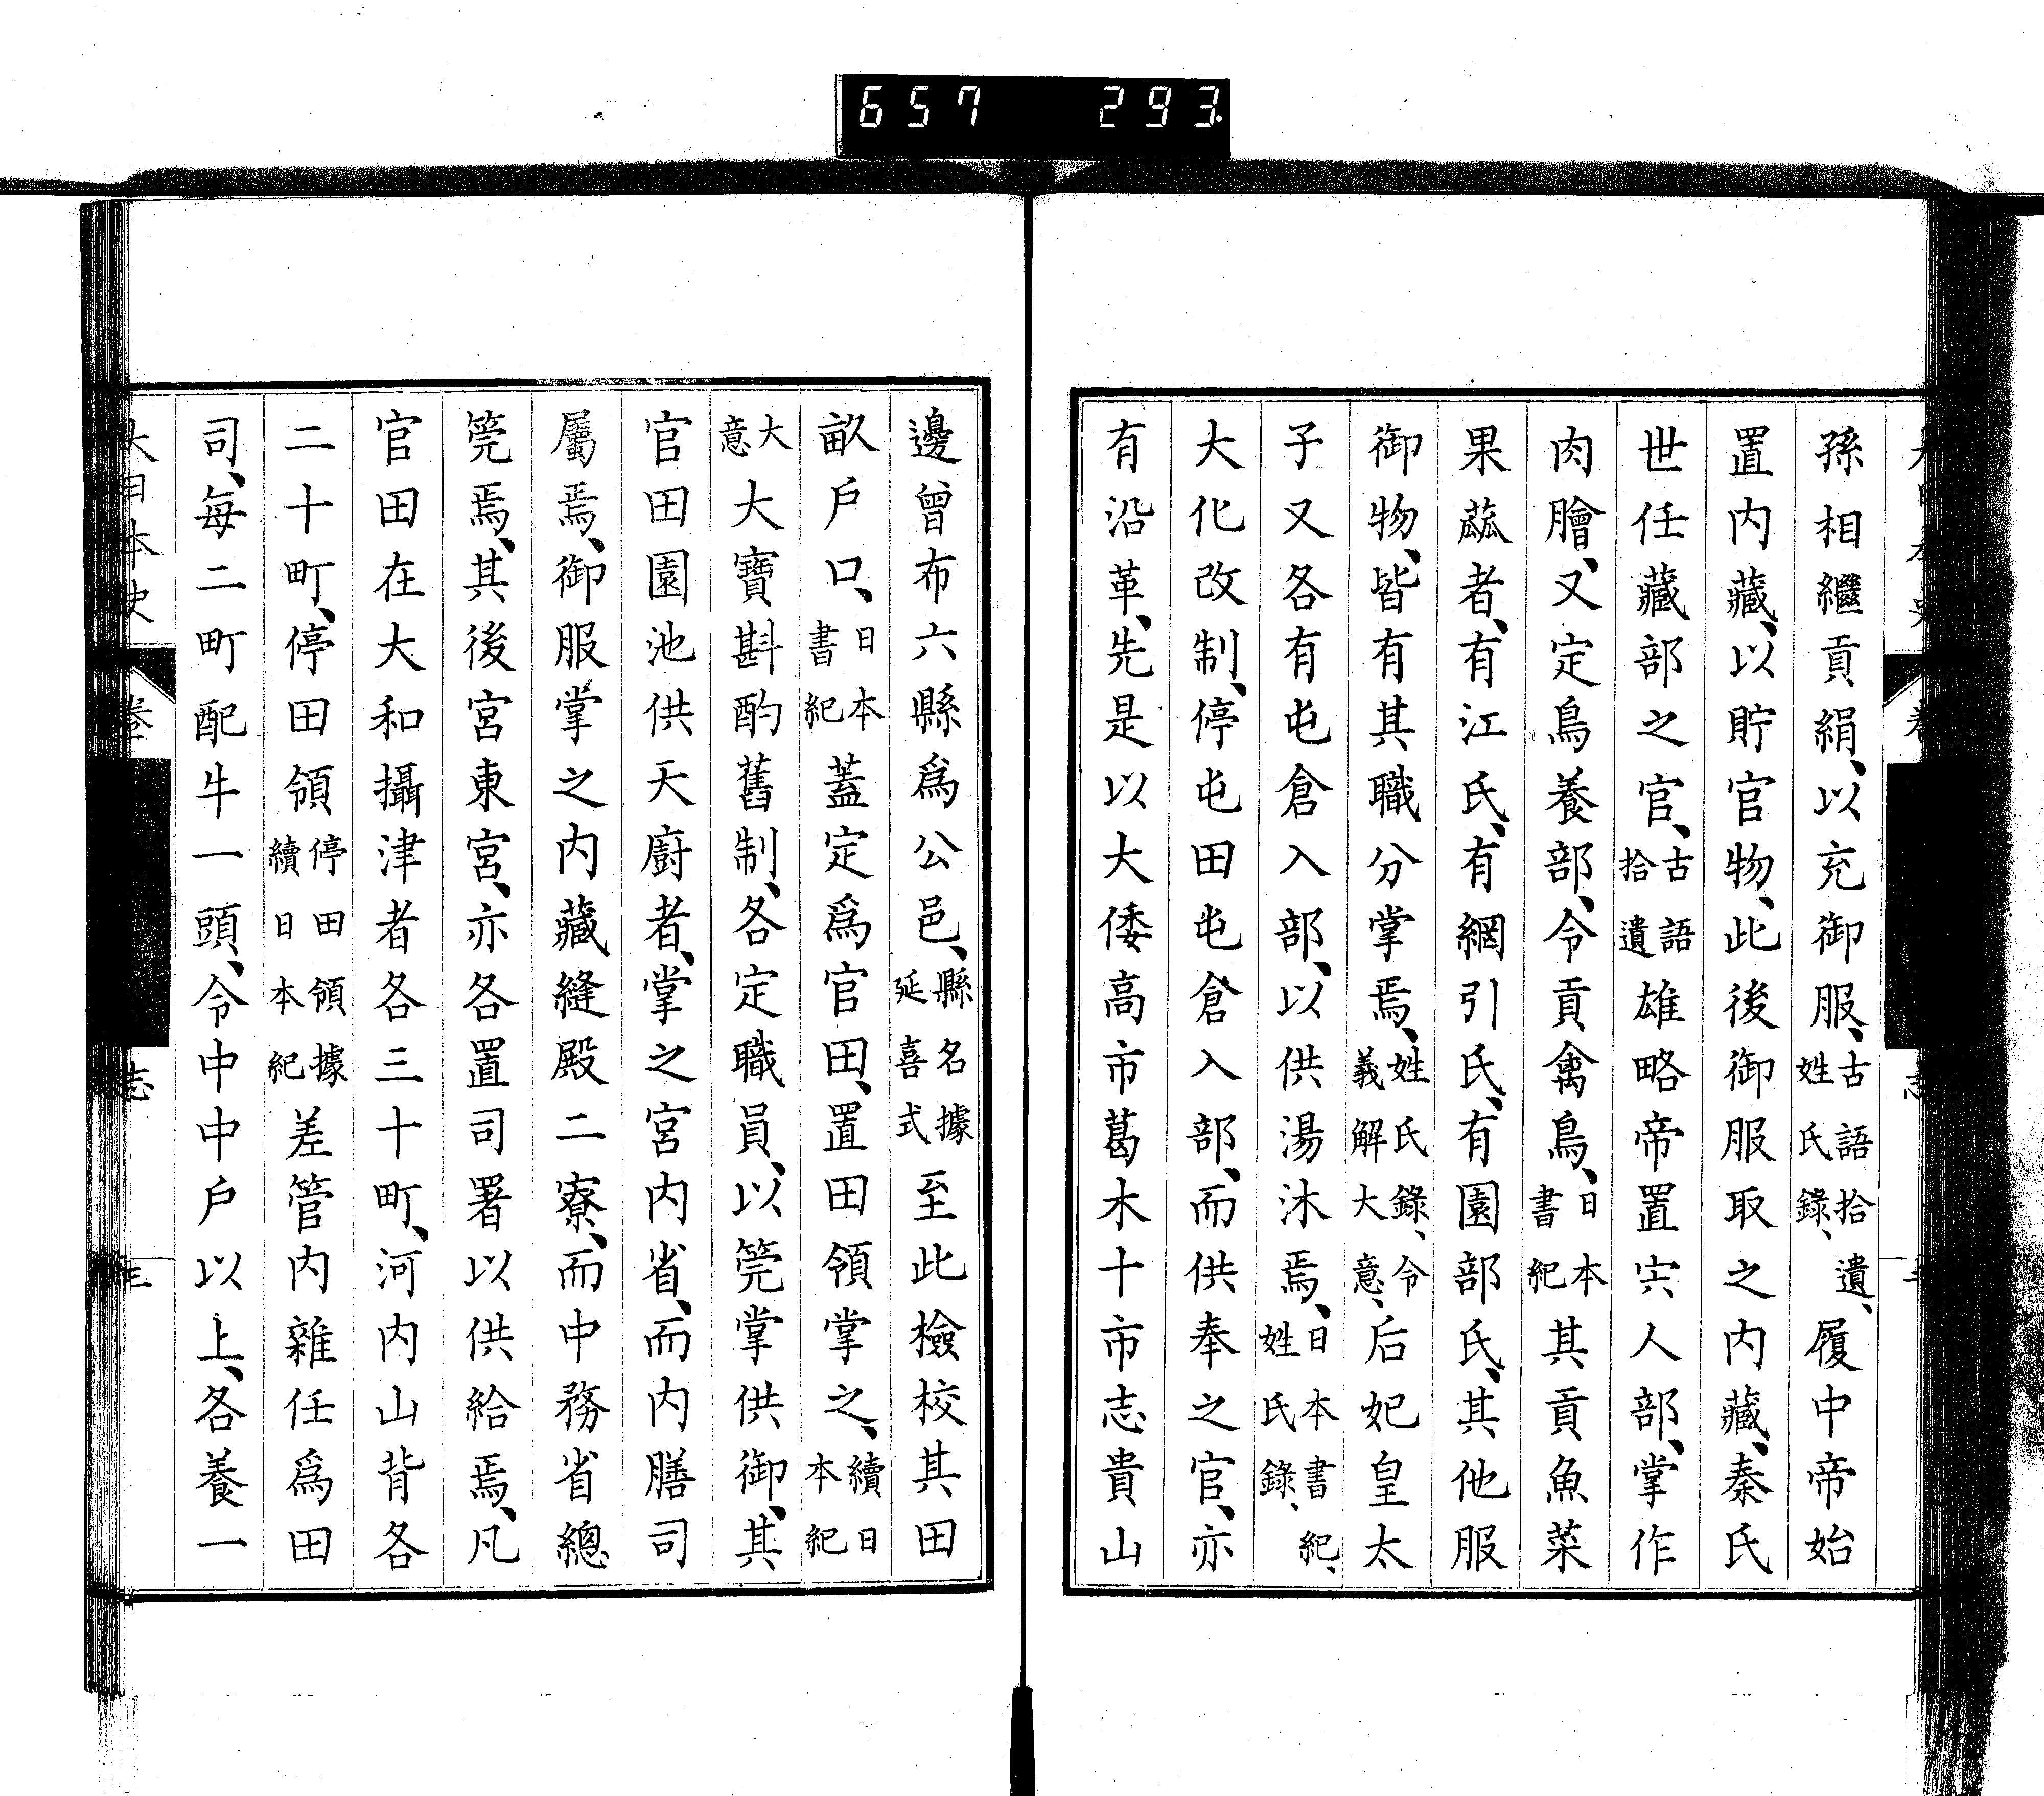 657 293
孫相繼貢絹、以充御服、古語拾遺、姓氏錄、履中帝始
置内藏、以貯官物、此後御服取之内藏、秦氏
世任藏部之官、古語拾遺雄略帝置宍人部、掌作
肉膾、又定鳥養部、令貢禽鳥、日本書紀其貢魚菜
果蓏者、有江氏、有網引氏、有園部氏、其他服
御物、皆有其職分掌焉、姓氏錄、令義解大意、后妃皇太
子又各有屯倉入部、以供湯沐焉、日本書紀、姓氏錄、
大化改制、停屯田屯倉入部、而供奉之官、亦
有沿革、先是以大倭高市葛木十市志貴山
邊曾布六縣爲公邑、縣名據延喜式至此檢校其田
畝戶口、日本書紀蓋定爲官田、置田領掌之、續日本紀
大意大寶斟酌舊制、各定職員、以筦掌供御、其
官田園池供天廚者、掌之宮内省、而内膳司
屬焉、御服掌之内藏縫殿二寮、而中務省總
筦焉、其後宮東宮、亦各置司署以供給焉、凡
官田在大和攝津者各三十町、河内山背各
二十町、停田領停田領據續日本紀差管内雜任爲田
司、每二町配牛一頭、令中中戶以上、各養一
大日本史 卷 志 三